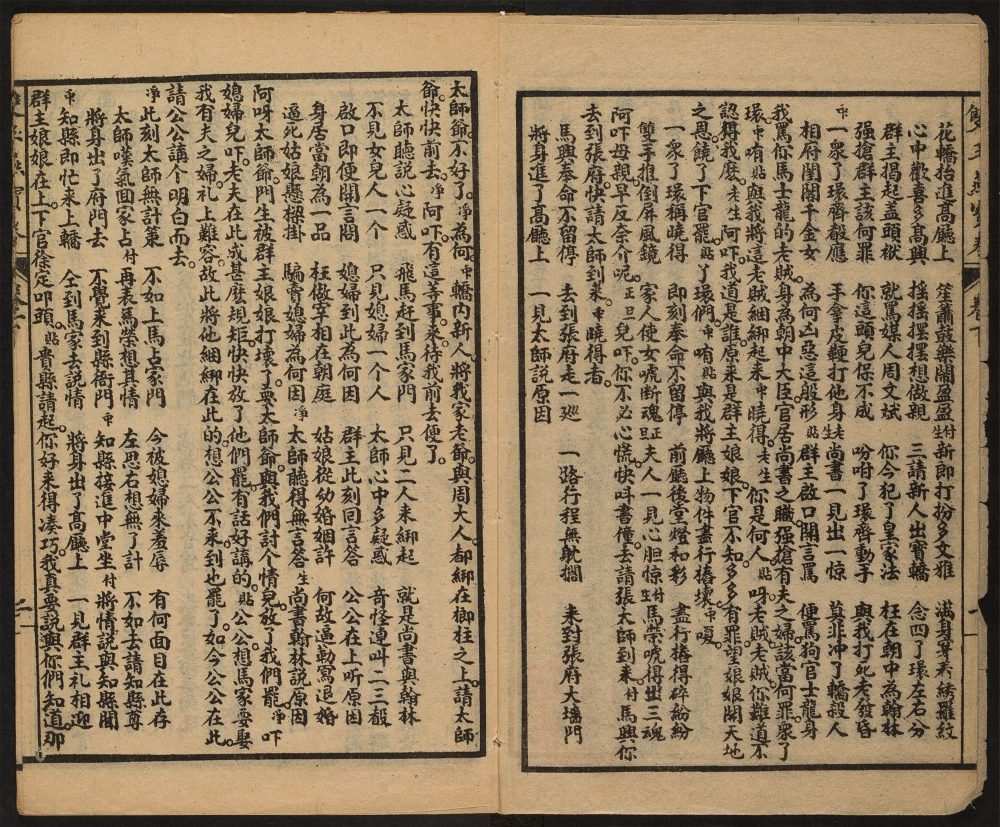 花轎抬進高廳上　笙蕭鼓樂鬧盈盈　付生新郎打扮多文雅　滿身尋秀綉羅紋
心中歡喜多高興　搖搖擺擺想做親　三請新人出寶轎　念四丫環左右分
群主揭起盖頭袱　就駡媒人周文斌　你今犯了皇家法　枉在朝中為翰林
强搶群主該何罪　你這頭兒保不成　吩咐丫環齊動手　與我打死老發昏
中一衆丫環齊報應　手拿皮鞭打他身　老尚書一見出一惊　莫非冲了轎殺人
相府閨閣千金女　為何凶惡這般形　貼群主啟口開言罵　便罵狗官士龍身
我罵你馬士龍的老賊。身為朝中大臣。官居尚書之職。强搶有夫之婦。該當何罪。衆丫
環。中哨貼與我將這老賊綑綁起來。中曉得。老生你是何人。貼呀老賊老賊。你難道不
認得我麽。老生阿吓我道是誰。原來是群主娘娘。下官不知。多多有罪。望娘娘開天地
之恩。饒了下官罷。貼丫環們。中哨貼與我將廳上物件。盡行摏壞。中嗄。
一衆丫環稱曉得　即刻奉命不留停　前廳後堂燈和彩　盡行摏得碎紛紛
雙手推倒屏風鏡　家人使女唬断魂　正旦夫人一見心胆惊　付生馬榮唬得出三魂
阿吓母親。早反奈介呢。正旦兒吓。你不必心慌。快叫書僮。去請張太師到來。付馬興你
去到張府。快請太師到來。中曉得者。
馬興奉命不留停　去到張府走一巡　一路行程無躭擱　來到張府大墻門
將身進了高廳上　一見太師説原因
太師爺。不好了。淨為何。中轎内新人。將我家老爺。與周大人。都綁在柳柱之上。請太師
爺。快快前去。淨阿吓。有這等事來。待我前去便了。
太師聽説心疑惑　飛馬趕到馬家門　只見二人來綁起　就是尚書與翰林
不見女兒人一个　只見媳婦一个人　太師心中多疑惑　奇怪連叫二三聲
啟口即便開言問　媳婦到此為何因　群主此刻回言答　公公在上听原因
身居當朝為一品　枉做宰相在朝庭　姑娘從幼婚姻許　何故逼勒寫退婚
逼死姑娘懸樑掛　騙賣媳婦為何因　淨太師聽得無言答　生尚書翰林説原因
阿呀太師爺。門生被群主娘娘打壞了。要太師爺。與我們討个情兒。放了我們罷。淨吓
媳婦兒吓。老夫在此。成甚麽規矩。快快放了他們罷。有話好講的。貼公公。想馬家要娶
我有夫之婦。礼上難容。故此將他綑綁在此的。想公公不來到也罷了。如今公公在此。
請公公講个明白而去。
淨此刻太師無計策　不如上馬占家門　今被媳婦來羞辱　有何面目在此存
太師嘆氣回家占　付再表馬榮想其情　左思右想無了計　不如去請知縣尊
將身出了府門去　不覺來到縣衙門　中知縣接進中堂坐　付將情説與知縣聞
中知縣即忙來上轎　仝到馬家去説情　將身出了高廳上　一見群主礼相迎
群主娘娘在上。下官徐定叩頭。貼貴縣請起。你好來得湊巧。我真要説與你們知道。那